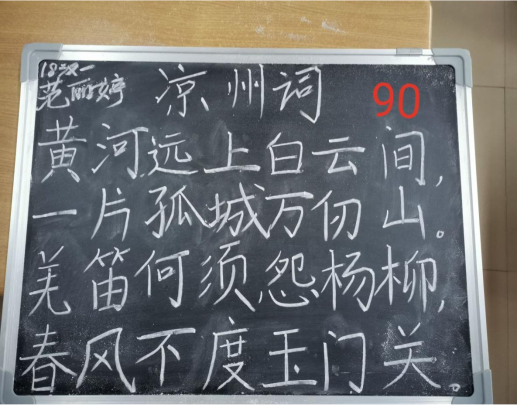 18汉一
范丽婷 凉州词 90
黄河远上白云间,
一片孤城万仞山。
羌笛何须怨杨柳,
春风不度玉门关。